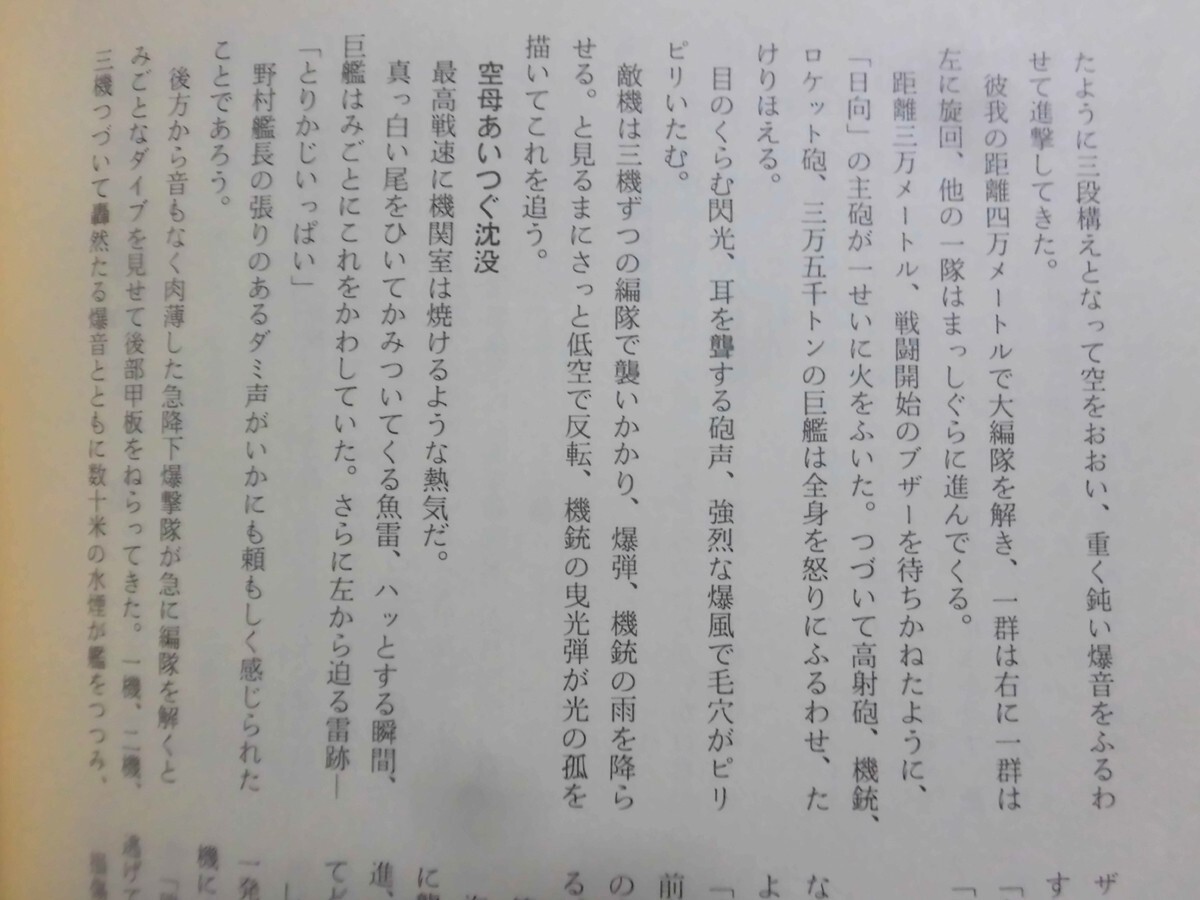 たように三段構えとなって空をおおい、重く鈍い爆音をふるわ
せて進撃してきた。
彼我の距離四万メートルで大編隊を解き、一群は右に一群は
左に旋回、他の一隊はまっしぐらに進んでくる。
距離三万メートル、戦闘開始のブザーを待ちかねたように、
「日向」の主砲が一せいに火をふいた。つづいて高射砲、機銃、
ロケット砲、三万五千トンの巨艦は全身を怒りにふるわせ、た
けりほえる。
目のくらむ閃光、耳を聾する砲声、強烈な爆風で毛穴がピリ
ピリいたむ。
敵機は三機ずつの編隊で襲いかかり、爆弾、機銃の雨を降ら
せる。と見るまにさっと低空で反転、機銃の曳光弾が光の孤を
描いてこれを追う。
空母あいつぐ沈没
最高戦速に機関室は焼けるような熱気だ。
真っ白い尾をひいてかみついてくる魚雷、ハッとする瞬間、
巨艦はみごとにこれをかわしていた。さらに左から迫る雷跡―
「とりかじいっぱい」
野村艦長の張りのあるダミ声がいかにも頼もしく感じられた
ことであろう。
後方から音もなく肉薄した急降下爆撃隊が急に編隊を解くと
みごとなダイブを見せて後部甲板をねらってきた。一機、二機、
三機つづいて轟然たる爆音とともに数十米の水煙が艦をつつみ、
ザ
す
「
「
な
よ
「
前
の
る
に
進、
てど
一発
機に
逃げて